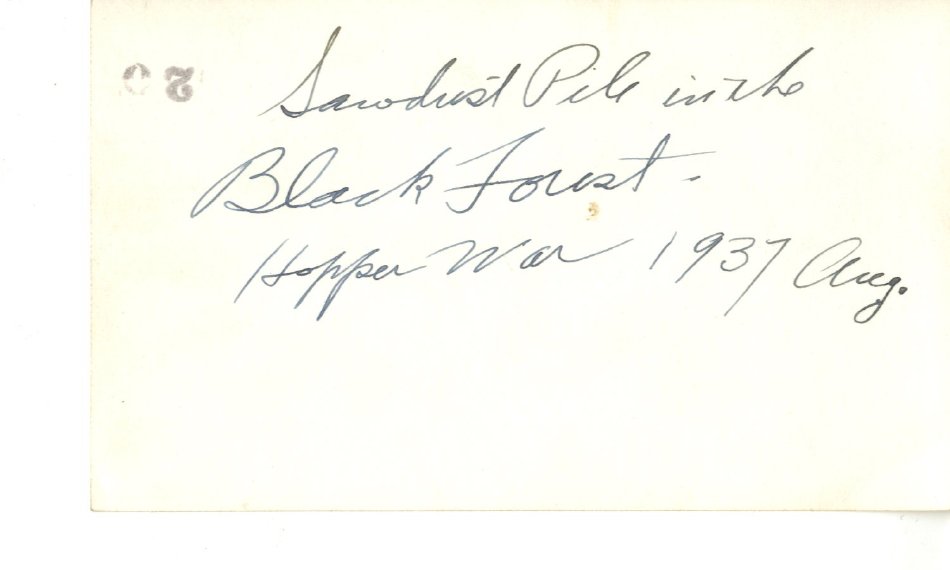 Sawdust Pile in the
Black Forest -
Hopper War 1937 Aug.